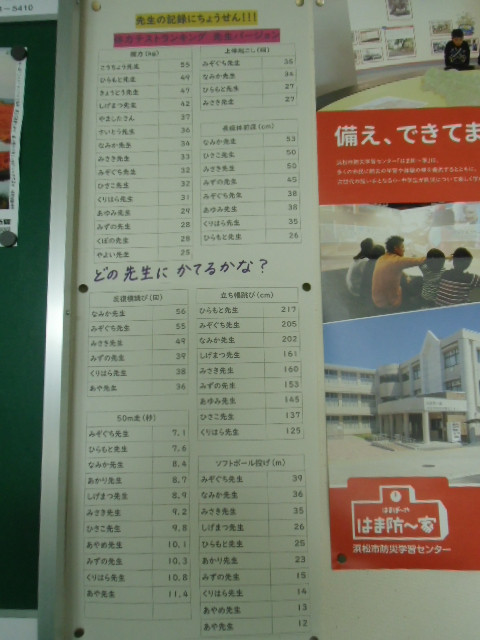 3-5410
先生の記録にちょうせん!!!
体力テストランキング 先生バージョン
握力(kg)
こうちょう先生 55
ひらもと先生 49
きょうとう先生 47
しげまつ先生 42
やました先生 37
36
なみか先生 34
みさき先生 33
みぞぐち先生 32
ひさこ先生 32
くりはら先生 31
あゆみ先生 29
みずの先生 28
くぼの先生 28
やよい先生 25
上体起こし(回)
みぞぐち先生 35
なみか先生 34
ひらもと先生 27
みさき先生 27
長座体前屈(cm)
なみか先生 53
ひさこ先生 50
みさき先生 50
みずの先生 45
みぞぐち先生 38
あゆみ先生 38
くりはら先生 35
ひらもと先生 26
どの先生に かてるかな?
反復横跳び(回)
なみか先生 56
みぞぐち先生 55
みさき先生 49
みずの先生 39
くりはら先生 38
あや先生 36
立ち幅跳び(cm)
ひらもと先生 217
みぞぐち先生 205
なみか先生 202
しげまつ先生 161
みさき先生 160
みずの先生 153
あゆみ先生 145
ひさこ先生 137
くりはら先生 125
50m走(秒)
みぞぐち先生 7.1
ひらもと先生 7.6
なみか先生 8.4
あかり先生 8.7
しげまつ先生 8.9
みさき先生 9.2
ひさこ先生 9.8
あやめ先生 10.1
みずの先生 10.3
くりはら先生 10.8
あや先生 11.4
ソフトボール投げ(m)
みぞぐち先生 39
なみか先生 36
みさき先生 35
しげまつ先生 26
ひらもと先生 25
あかり先生 23
みずの先生 15
くりはら先生 14
あやめ先生 13
あや先生 12
備え、できてま
浜松市防災学習センター「はま防~家」は、
はまぼ~や
はま防~家
浜松市防災学習センター